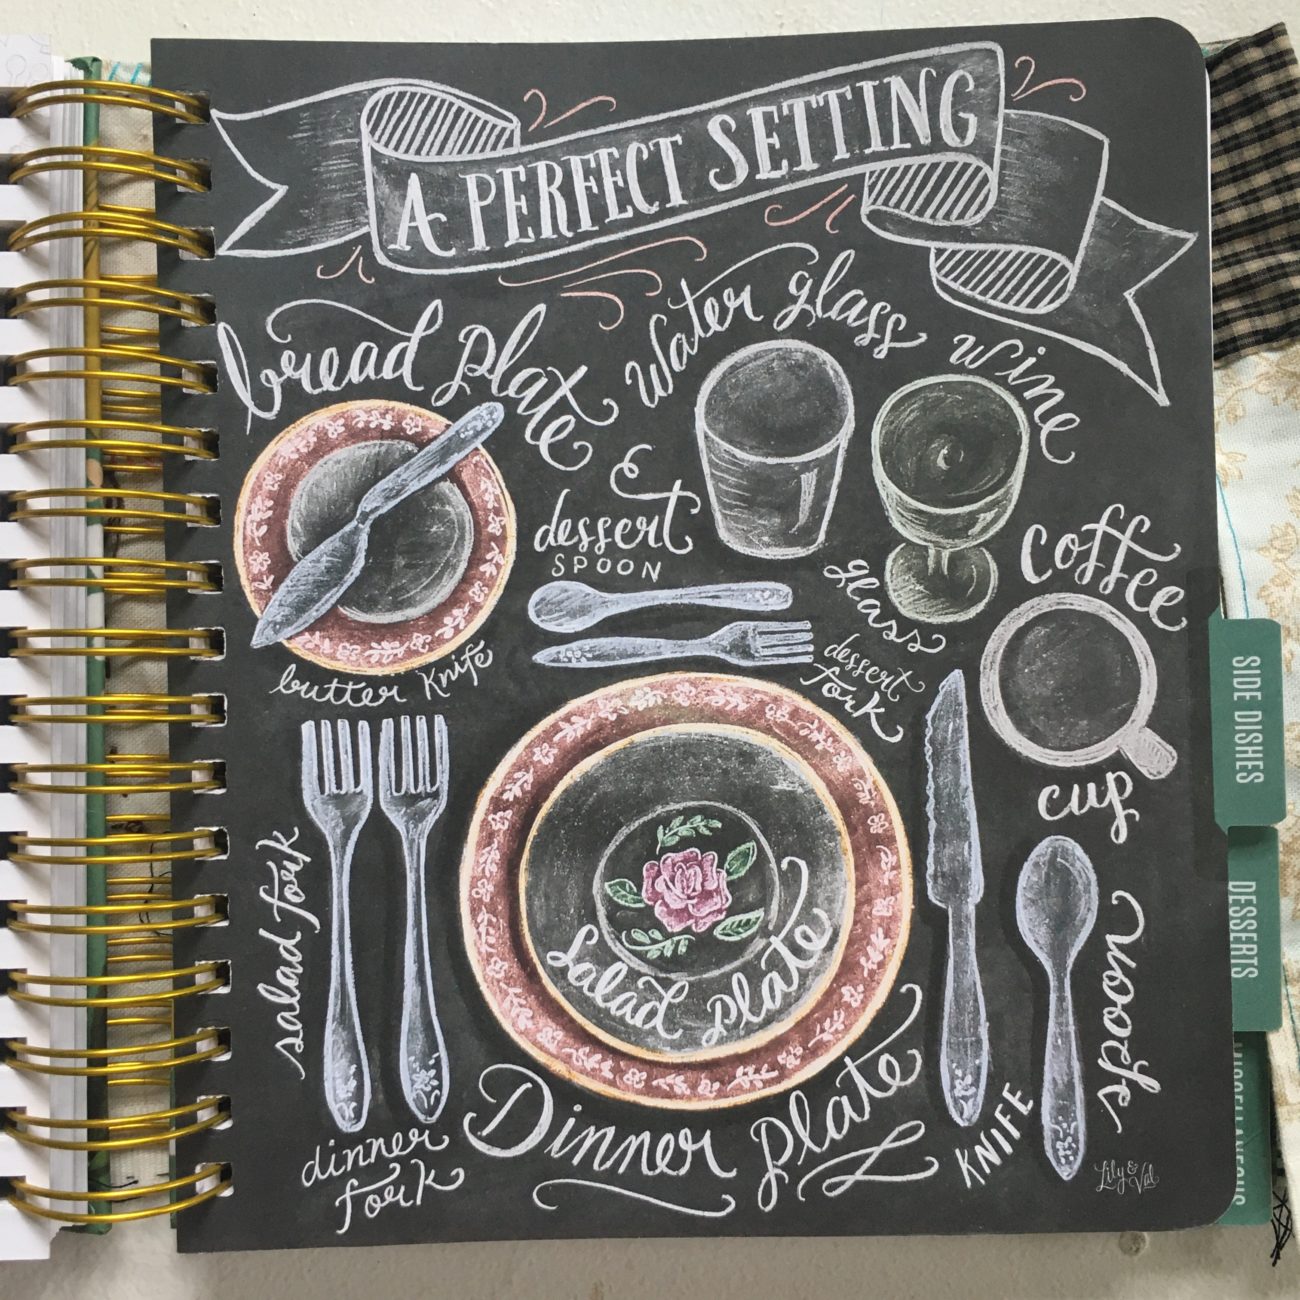 A PERFECT SETTING
bread plate
&
butter knife
water glass
wine
glass
dessert
SPOON
dessert
fork
coffee
cup
salad fork
dinner
fork
Salad plate
Dinner plate
KNIFE
spoon
Lily &
Val
SIDE DISHES
DESSERTS
MISCELLANEOUS